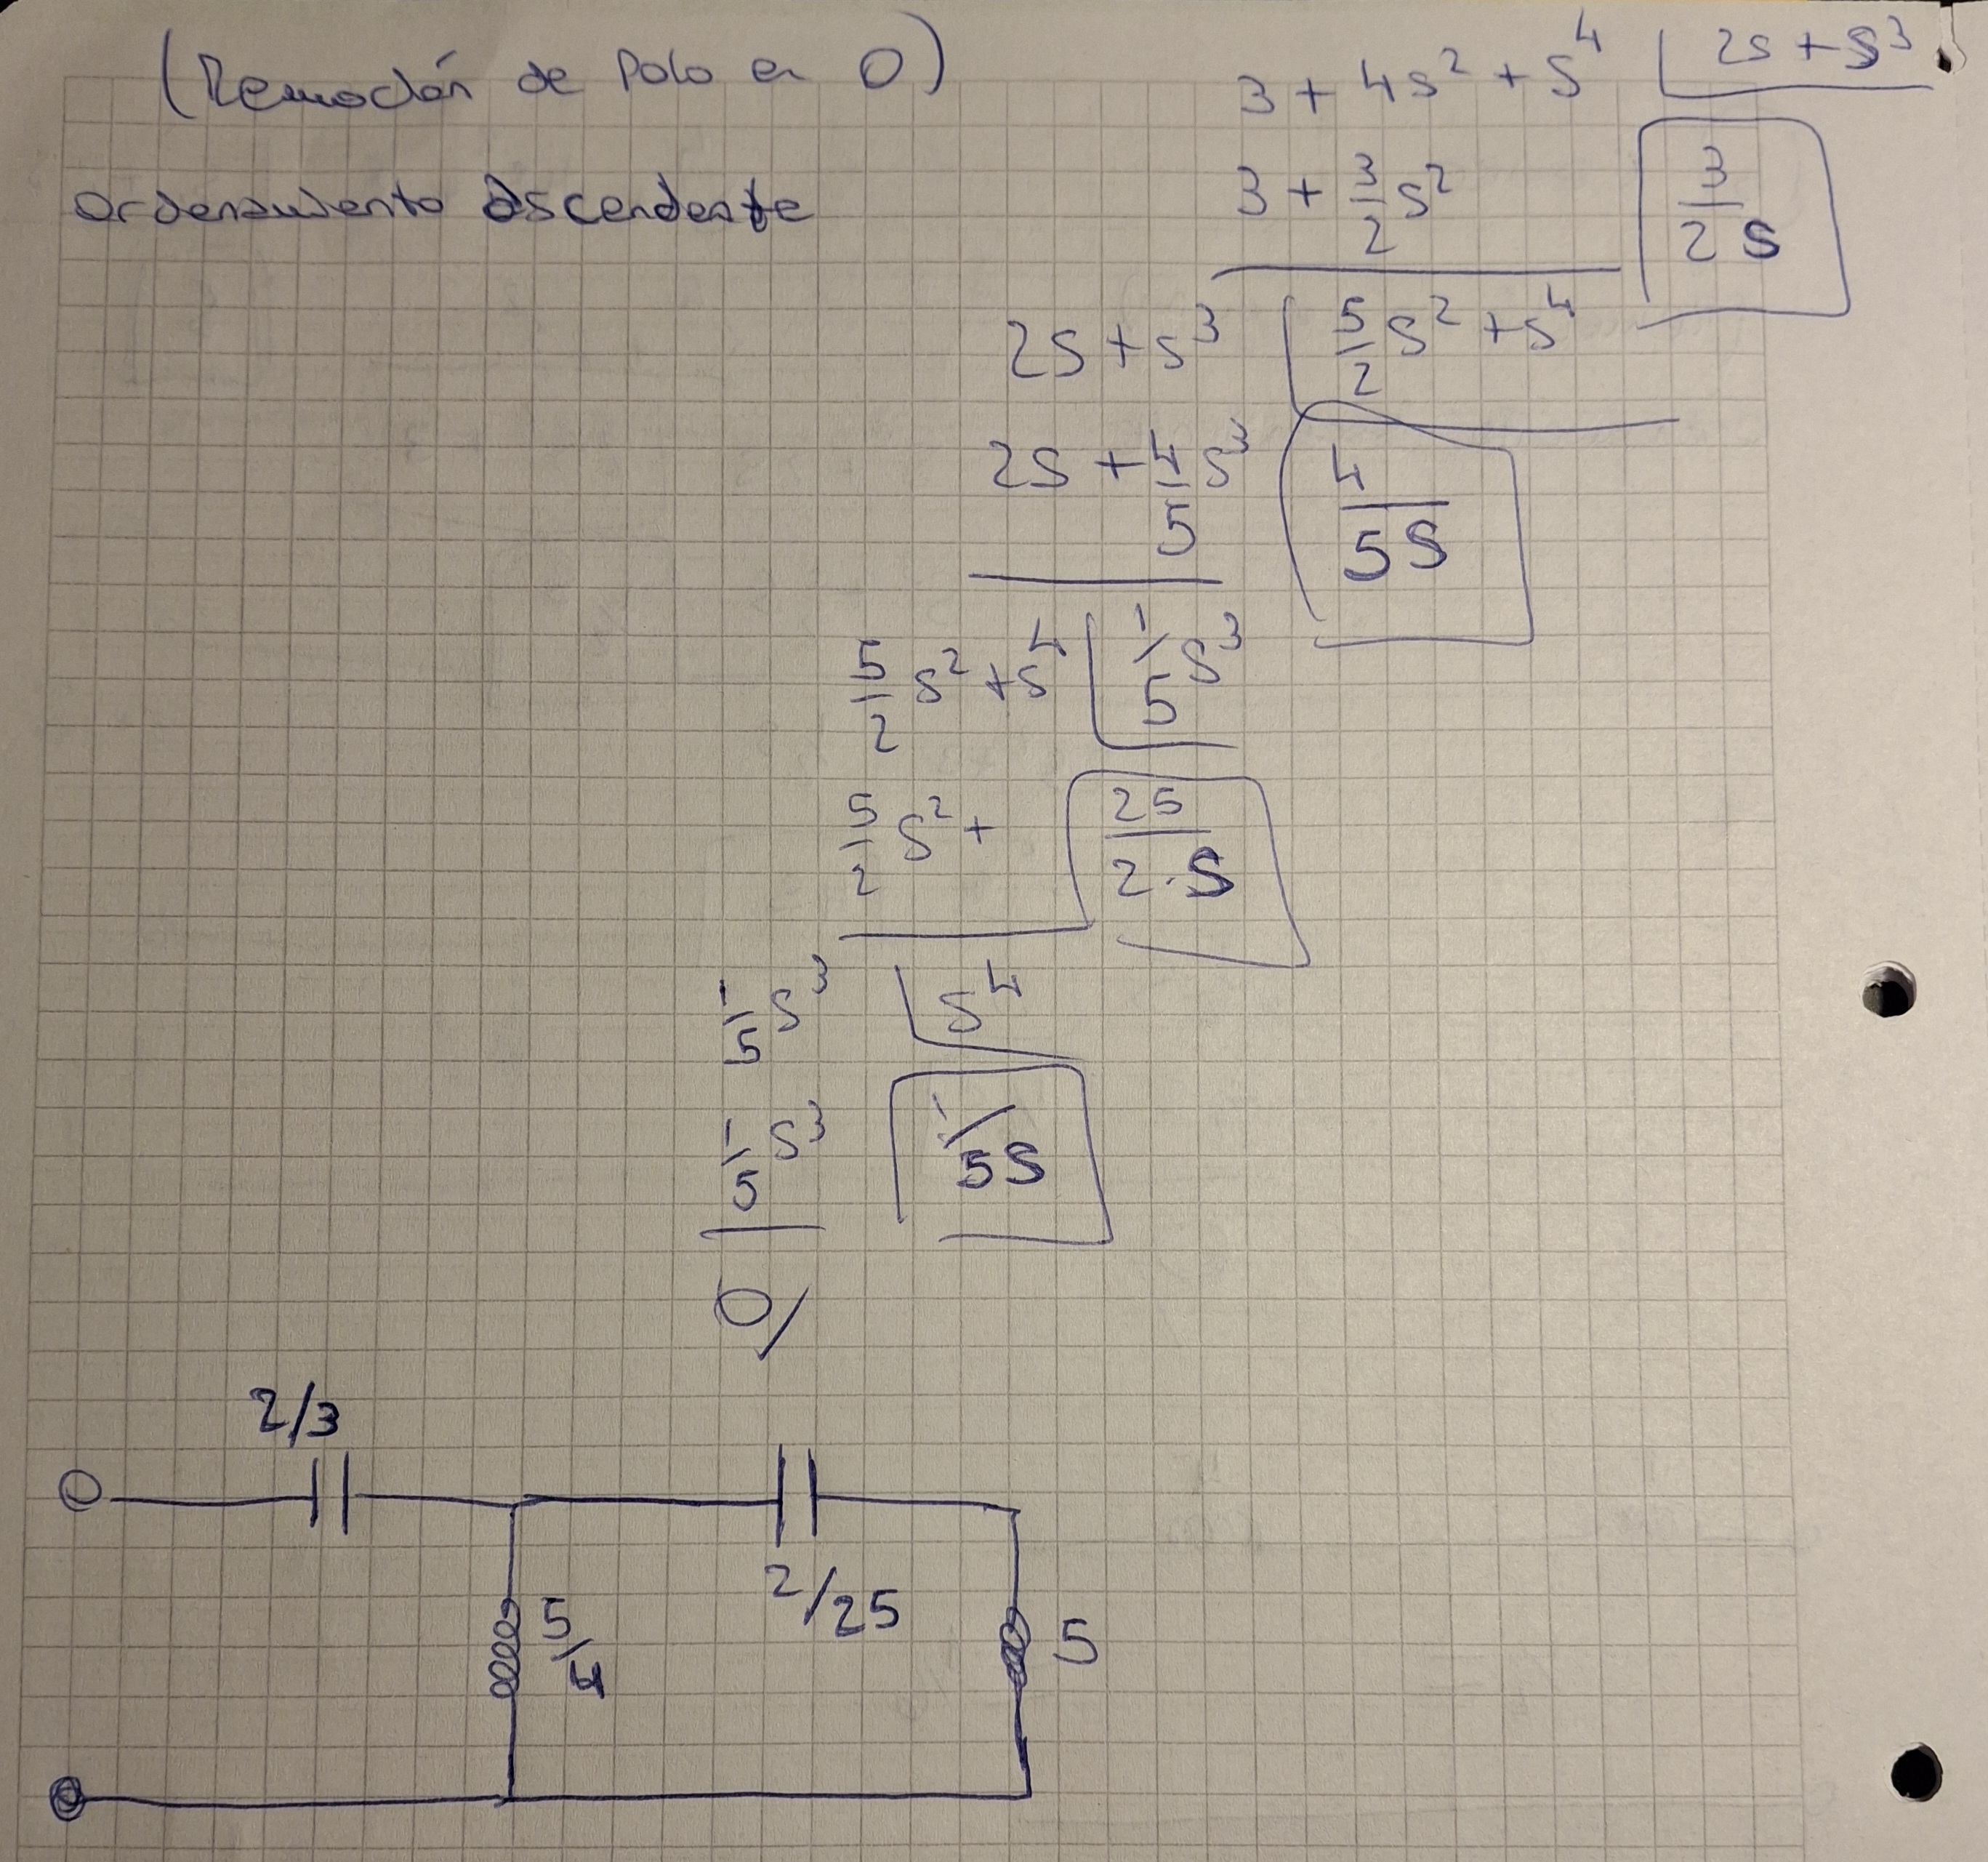 (Remoción de Polo en 0)
Ordenamiento ascendente
3 + 4s² + s⁴ | 2s + s³
3 + 3/2 s²
3/2s
2s + s³ | 5/2 s² + s⁴
2s + 4/5 s³
4/5s
5/2 s² + s⁴ | 1/5 s³
5/2 s² +
25/2·s
1/5 s³ | s⁴
1/5 s³
1/5s
0/
2/3
2/25
5/4
5